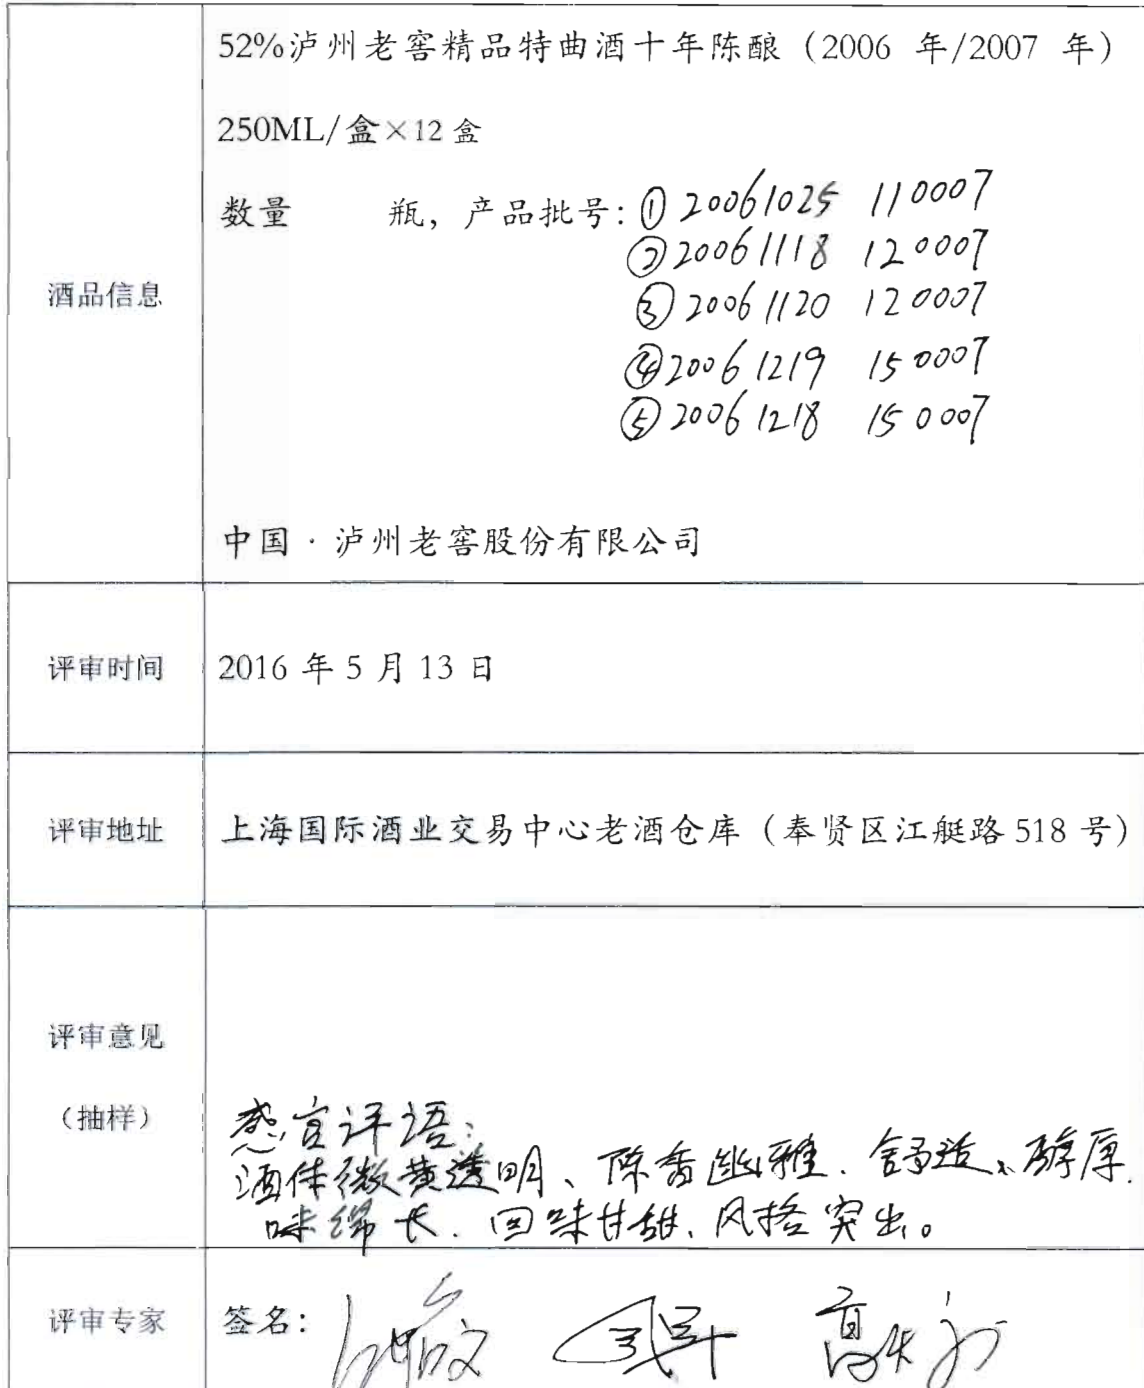 52%泸州老窖精品特曲酒十年陈酿（2006 年/2007 年）
250ML/盒×12盒
数量 瓶，产品批号：① 20061025 110007
② 20061118 120007
③ 20061120 120007
④ 20061219 150007
⑤ 20061218 150007
酒品信息
中国·泸州老窖股份有限公司
评审时间 2016 年 5 月 13 日
评审地址 上海国际酒业交易中心老酒仓库（奉贤区江艇路 518 号）
评审意见
（抽样）
感官评语：
酒体微黄透明、陈香幽雅、舒适、醇厚、
味绵长、回味甘甜、风格突出。
评审专家 签名：